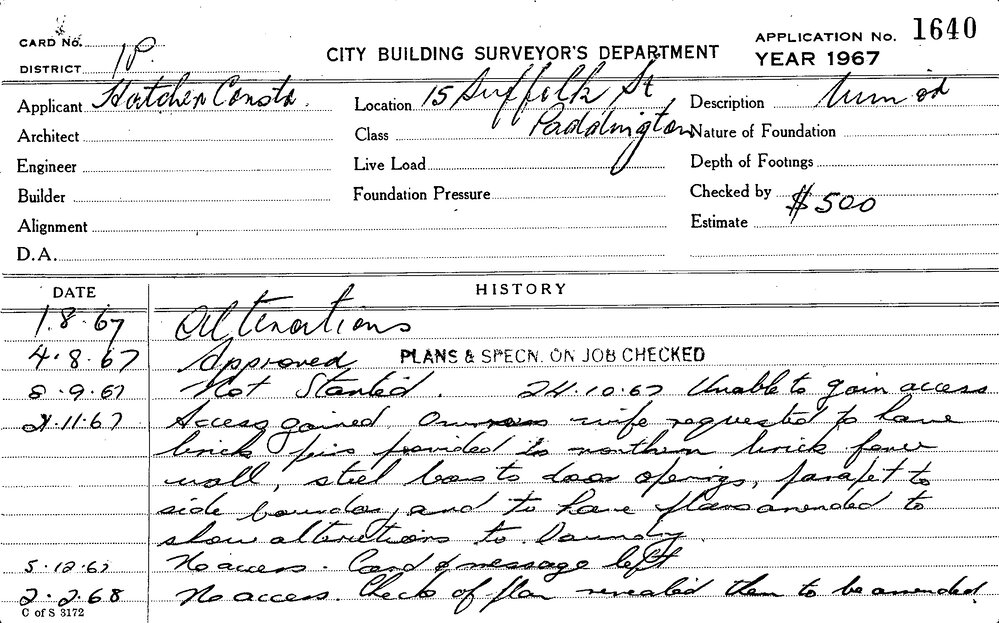 CARD No.
DISTRICT 18
CITY BUILDING SURVEYOR'S DEPARTMENT
APPLICATION No. 1640
YEAR 1967
Applicant Hatcher Constr.
Location 15 Suffolk St
Description
Architect
Class Paddington
Nature of Foundation
Engineer
Live Load
Depth of Footings
Builder
Foundation Pressure
Checked by
Alignment
Estimate $500
D.A.
DATE HISTORY
1.8.67 Alterations
4.8.67 Approved PLANS & SPECN. ON JOB CHECKED
8.9.67 Not Started. 24.10.67 Unable to gain access
2.11.67 Access gained, Owners wife requested to have
brick piers provided to northern brick fence
wall, steel bars to door openings, parapet to
side boundary, and to have plans amended to
show alterations to Laundry.
5.12.67 No access. Card & message left
2.2.68 No access. Check of plan revealed them to be amended
C of S 3172